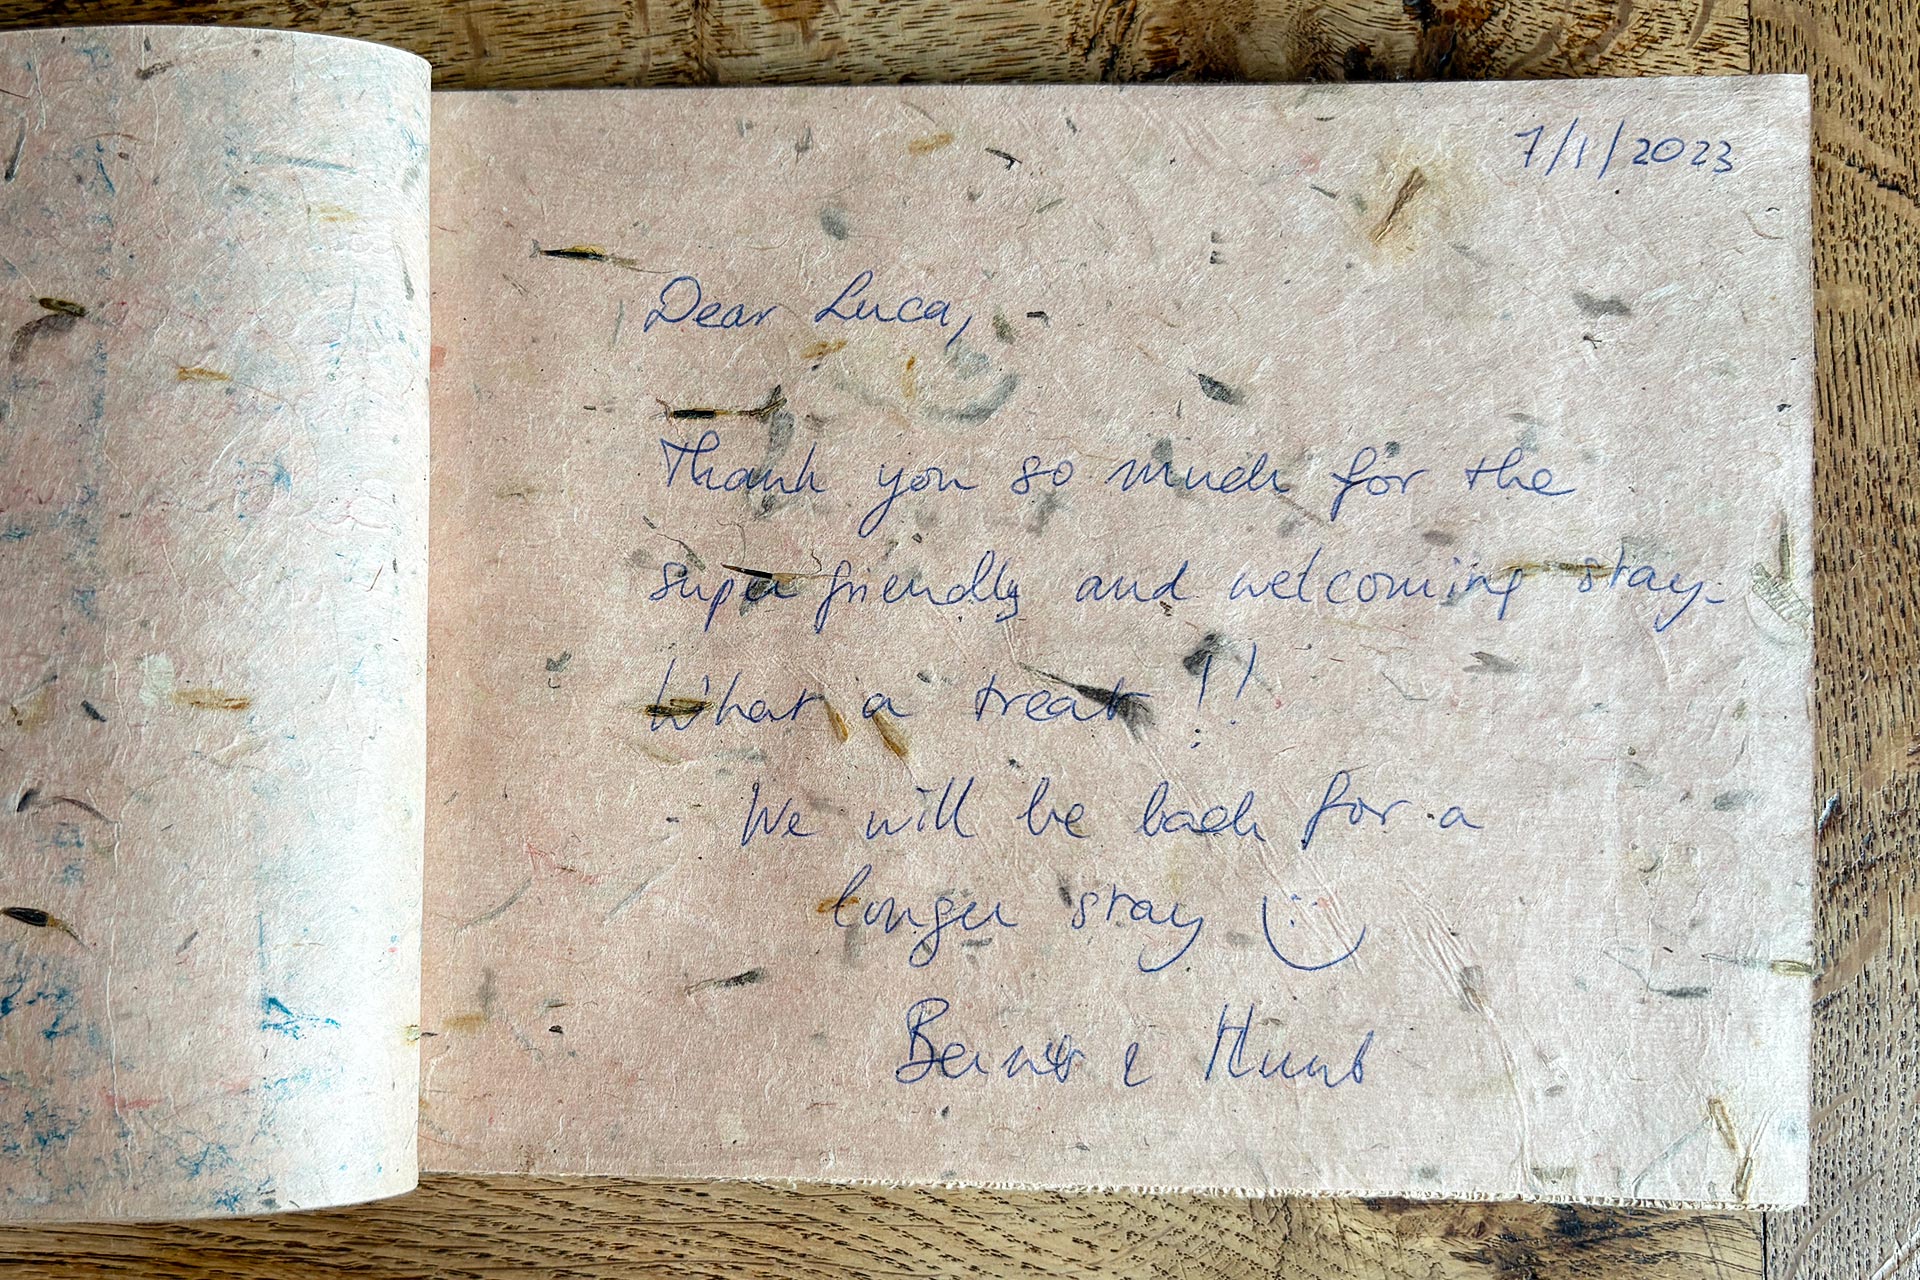 7/1/2023
Dear Luca,
Thank you so much for the
super friendly and welcoming stay.
What a treat !!
We will be back for a
longer stay :)
&